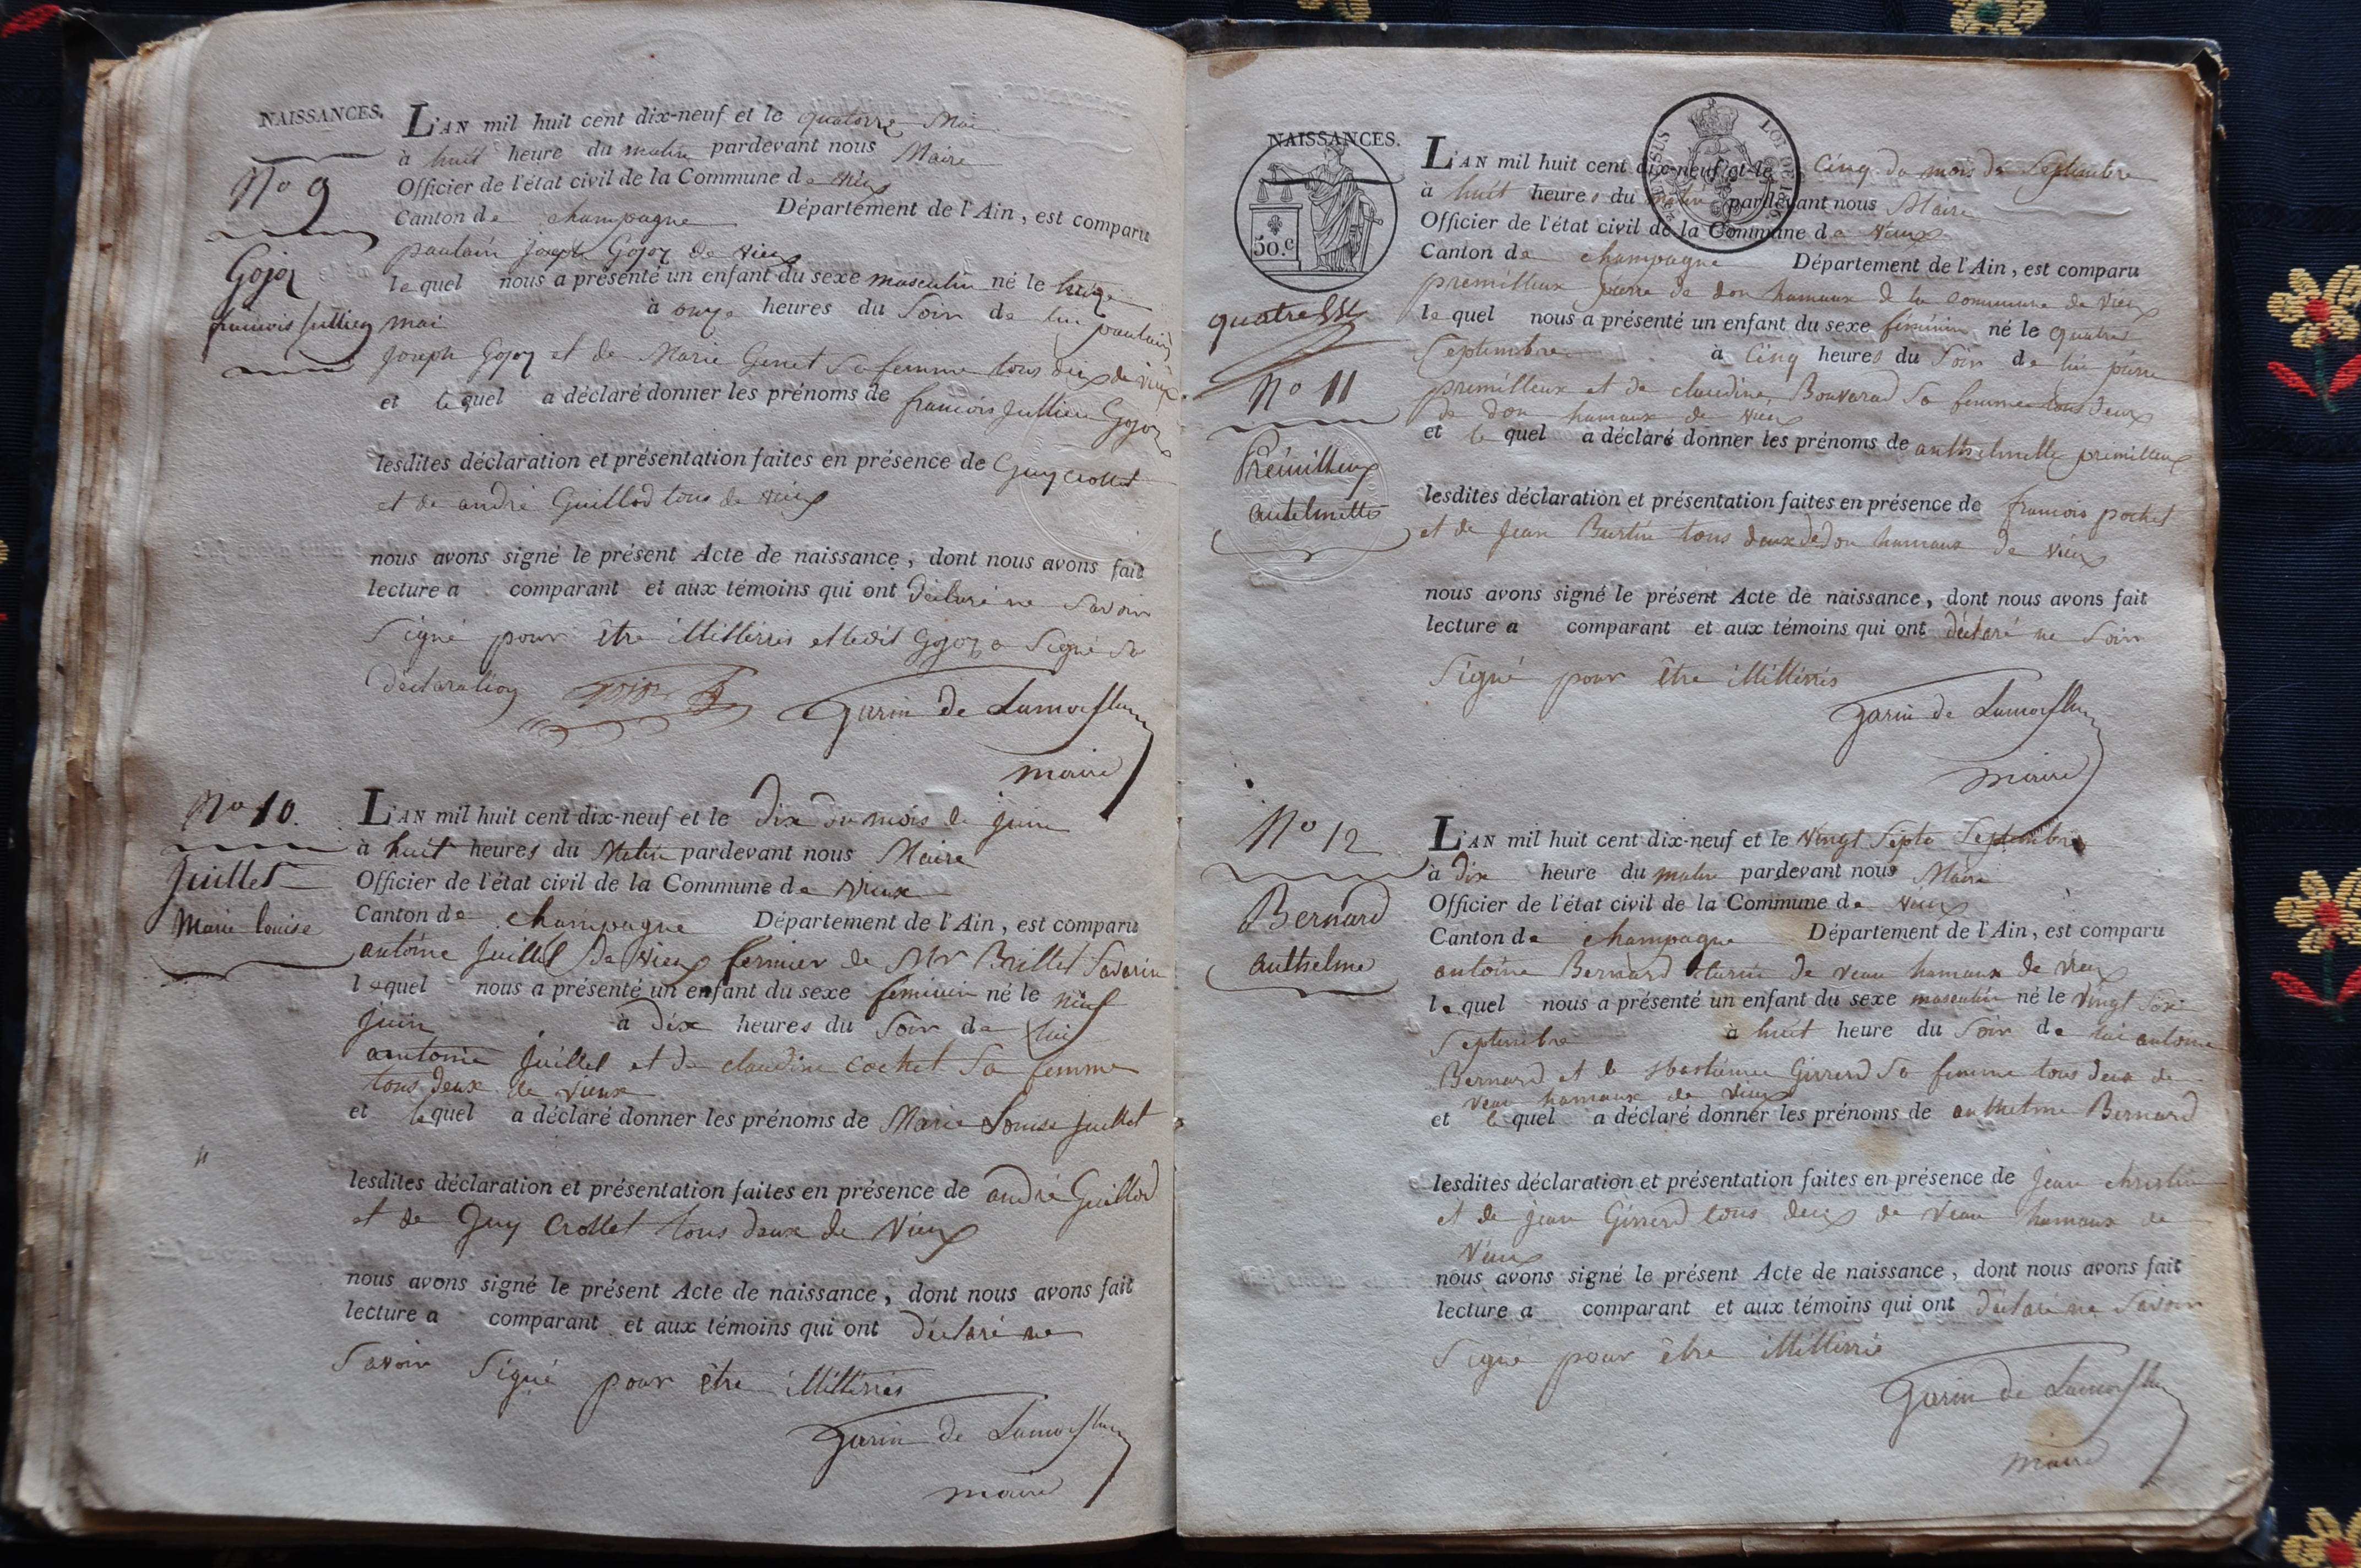 NAISSANCES.
L'AN mil huit cent dix-neuf et le quatorze Mai
à huit heure du matin pardevant nous Maire
Officier de l'état civil de la Commune de vieu
Canton de champagne Département de l'Ain, est comparu
paulain joseph Gojoz de vieu
lequel nous a présenté un enfant du sexe masculin né le
mai à onze heures du Soir de lui paulain
joseph Gojoz et de Marie Genet Sa femme tous deux de vieu
et lequel a déclaré donner les prénoms de francois jullien Gojoz
lesdites déclaration et présentation faites en présence de Guy Crollet
et de andré Guillod tous de vieu
nous avons signé le présent Acte de naissance, dont nous avons fait
lecture a comparant et aux témoins qui ont déclaré ne Savoir
Signé pour être illitirris et ledit Gojoz a Signé Sa
déclaration
Garin de Lamorflan
maire
No 9
Gojoz
francois jullien
No 10.
juillet
Marie louise
L'AN mil huit cent dix-neuf et le dix du mois de juin
à huit heures du Matin pardevant nous Maire
Officier de l'état civil de la Commune de vieux
Canton de champagne Département de l'Ain, est comparu
antoine juillet de vieu fermier de Mr Brillet Savarin
lequel nous a présenté un enfant du sexe feminin né le neuf
juin à dix heures du Soir de lui
antoine juillet et de claudine cochet Sa femme
tous deux de vieux
et lequel a déclaré donner les prénoms de Marie Louise juillet
lesdites déclaration et présentation faites en présence de andré Guillod
et de Guy Crollet tous deux de vieu
nous avons signé le présent Acte de naissance, dont nous avons fait
lecture a comparant et aux témoins qui ont déclaré ne
Savoir Signé pour être illitirris
Garin de Lamorflan
maire
NAISSANCES.
50.c
LOI DE 1816.
quatre
No 11
Prémilleux
antelmette
L'AN mil huit cent dix-neuf et le Cinq du mois de Septembre
à huit heures du matin pardevant nous Maire
Officier de l'état civil de la Commune de vieux
Canton de champagne Département de l'Ain, est comparu
premilleux pierre de don hamaux de la commune de vieu
lequel nous a présenté un enfant du sexe féminin né le quatre
Septembre à Cinq heures du Soir de lui pierre
premilleux et de claudine Bouvarad Sa femme tous deux
de don hamaux de vieu
et lequel a déclaré donner les prénoms de anthelmette premilleux
lesdites déclaration et présentation faites en présence de francois pochet
et de jean Burtin tous deux de don hamaux de vieu
nous avons signé le présent Acte de naissance, dont nous avons fait
lecture a comparant et aux témoins qui ont déclaré ne Soir
Signé pour être illitirris
Garin de Lamorflan
maire
No 12
Bernard
anthelme
L'AN mil huit cent dix-neuf et le vingt Septe Septembre
à dix heure du matin pardevant nous Maire
Officier de l'état civil de la Commune de vieu
Canton de champagne Département de l'Ain, est comparu
antoine Bernard de veau hamaux de vieu
lequel nous a présenté un enfant du sexe masculin né le vingt Six
Septembre à huit heure du Soir de lui antoine
Bernard et de sbastienne Girrerd Sa femme tous deux de
veau hamaux de vieux
et lequel a déclaré donner les prénoms de anthelme Bernard
lesdites déclaration et présentation faites en présence de jean christin
et de jean Girrerd tous deux de veau hamaux de
vieu
nous avons signé le présent Acte de naissance, dont nous avons fait
lecture a comparant et aux témoins qui ont déclaré ne Savoir
Signé pour être illitirris
Garin de Lamorflan
maire